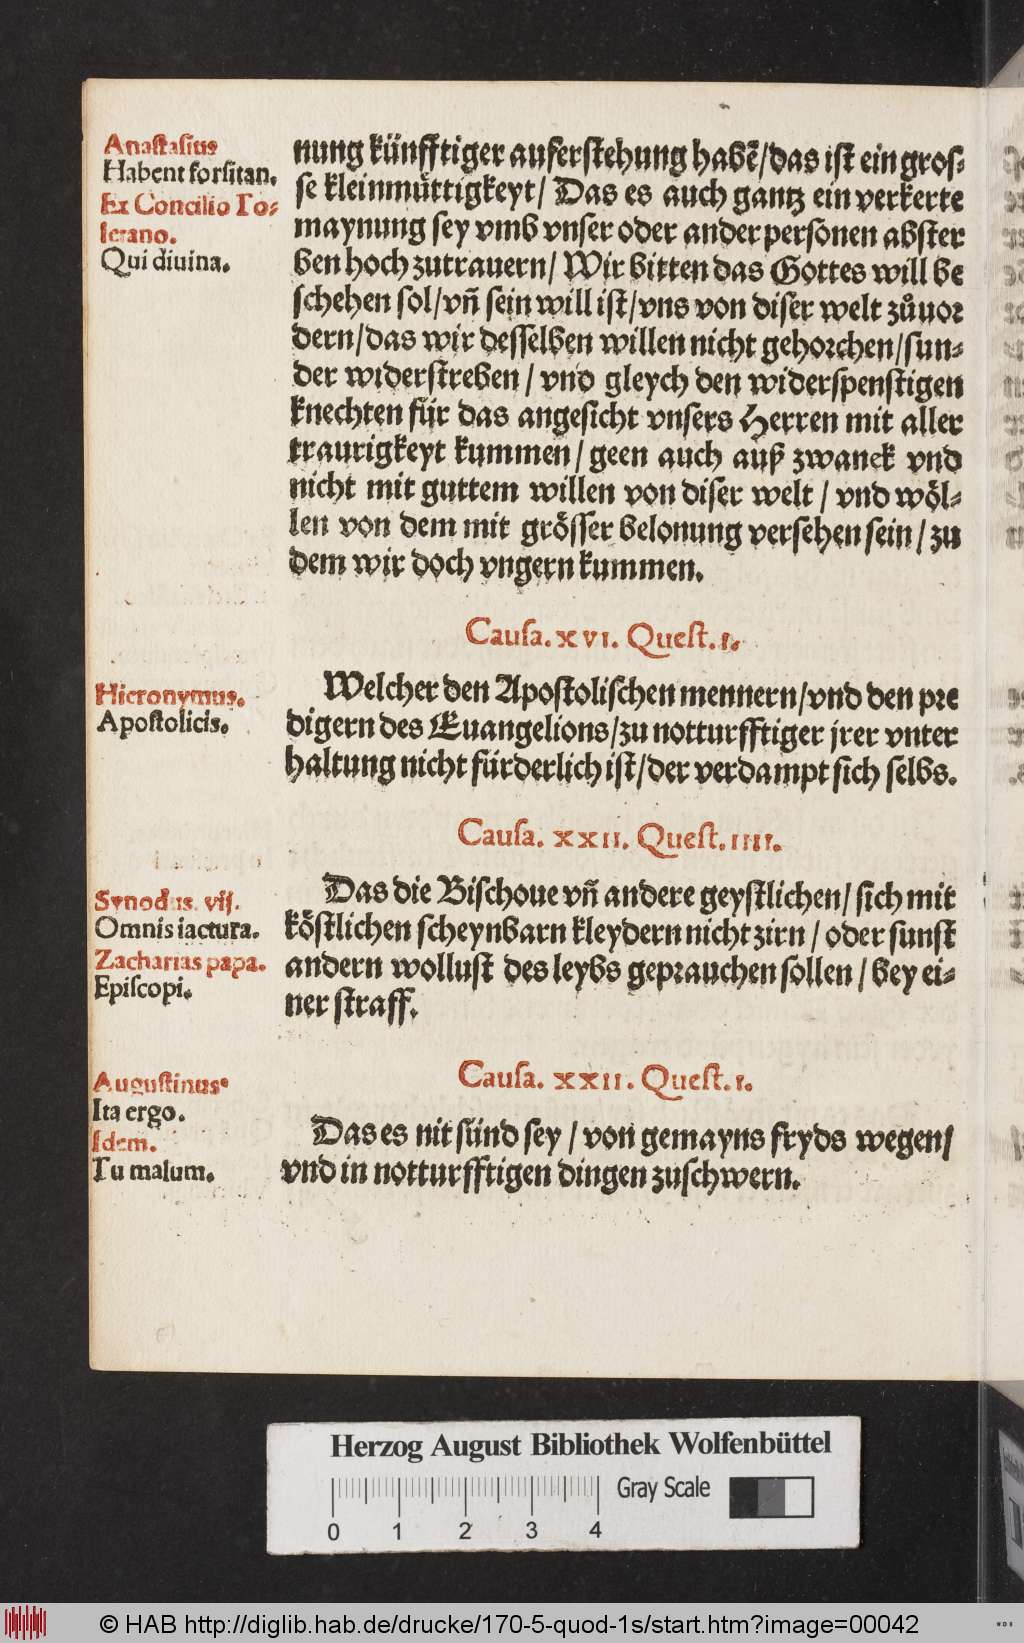 Anastasius
Habent forsitan.
Ex Concilio To-
letano.
Qui diuina.
nung künfftiger auferstehung habẽ/das ist ein gros-
se kleinmüttigkeyt/ Das es auch gantz ein verkerte
maynung sey vmb vnser oder ander personen abster
ben hoch zutrauern/ Wir bitten das Gottes will be
schehen sol/vñ sein will ist/vns von diser welt zůuor
dern/das wir desselben willen nicht gehorchen/sun-
der widerstreben/ vnd gleych den widerspenstigen
knechten für das angesicht vnsers Herren mit aller
traurigkeyt kummen/ geen auch auß zwanck vnd
nicht mit guttem willen von diser welt/ vnd wöl-
len von dem mit grösser belonung versehen sein/ zu
dem wir doch vngern kummen.
Causa. xvi. Quest. i.
Hieronymus.
Apostolicis.
Welcher den Apostolischen mennern/vnd den pre
digern des Euangelions/zu notturfftiger jrer vnter
haltung nicht fürderlich ist/der verdampt sich selbs.
Causa. xxii. Quest. iiii.
Synodus. vij.
Omnis iactura.
Zacharias papa.
Episcopi.
Das die Bischoue vñ andere geystlichen/ sich mit
köstlichen scheynbarn kleydern nicht zirn/ oder sunst
andern wollust des leybs geprauchen sollen/ bey ei-
ner straff.
Causa. xxii. Quest. i.
Augustinus
Ita ergo.
Idem.
Tu malum.
Das es nit sünd sey/ von gemayns fryds wegen/
vnd in notturfftigen dingen zuschwern.
Herzog August Bibliothek Wolfenbüttel
Gray Scale
0 1 2 3 4
© HAB http://diglib.hab.de/drucke/170-5-quod-1s/start.htm?image=00042